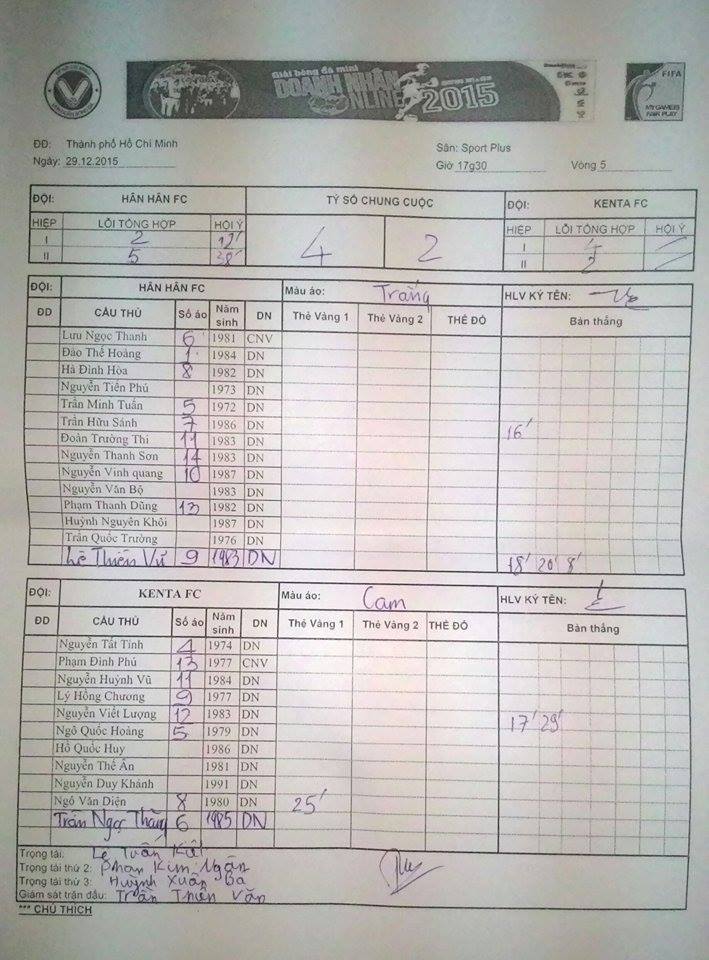 Giải bóng đá mini
DOANH NHÂN
ONLINE 2015
FIFA
MY GAME IS
FAIR PLAY
ĐD: Thành phố Hồ Chí Minh Sân: Sport Plus
Ngày: 29.12.2015 Giờ 17g30 Vòng 5
ĐỘI: HÂN HÂN FC TỶ SỐ CHUNG CUỘC ĐỘI: KENTA FC
HIỆP LỖI TỔNG HỢP HỘI Ý 4 2 HIỆP LỖI TỔNG HỢP HỘI Ý
I 2 12' I 4
II 5 38' II 2
ĐỘI: HÂN HÂN FC Màu áo: Trắng HLV KÝ TÊN:
ĐD CẦU THỦ Số áo Năm sinh DN Thẻ Vàng 1 Thẻ Vàng 2 THẺ ĐỎ Bàn thắng
Lưu Ngọc Thanh 6 1981 CNV
Đào Thế Hoàng 1 1984 DN
Hà Đình Hòa 8 1982 DN
Nguyễn Tiến Phú 1973 DN
Trần Minh Tuấn 5 1972 DN
Trần Hữu Sánh 7 1986 DN 16'
Đoàn Trường Thi 11 1983 DN
Nguyễn Thanh Sơn 14 1983 DN
Nguyễn Vinh quang 10 1987 DN
Nguyễn Văn Bộ 1983 DN
Phạm Thanh Dũng 13 1982 DN
Huỳnh Nguyên Khôi 1987 DN
Trần Quốc Trường 1976 DN
Lê Thiên Vũ 9 1983 DN 18' 20' 8'
ĐỘI: KENTA FC Màu áo: Cam HLV KÝ TÊN:
ĐD CẦU THỦ Số áo Năm sinh DN Thẻ Vàng 1 Thẻ Vàng 2 THẺ ĐỎ Bàn thắng
Nguyễn Tất Tính 4 1974 DN
Phạm Đình Phú 13 1977 CNV
Nguyễn Huỳnh Vũ 11 1984 DN
Lý Hồng Chương 9 1977 DN
Nguyễn Viết Lượng 12 1983 DN 17' 29'
Ngô Quốc Hoàng 5 1979 DN
Hồ Quốc Huy 1986 DN
Nguyễn Thế Ân 1981 DN
Nguyễn Duy Khánh 1991 DN
Ngô Văn Diện 8 1980 DN 25'
Trần Ngọc Thắng 6 1985 DN
Trọng tài: Lê Tuấn Kiệt
Trọng tài thứ 2: Phan Kim Ngân
Trọng tài thứ 3: Huỳnh Xuân Ba
Giám sát trận đấu: Trần Thiên Văn
*** CHÚ THÍCH